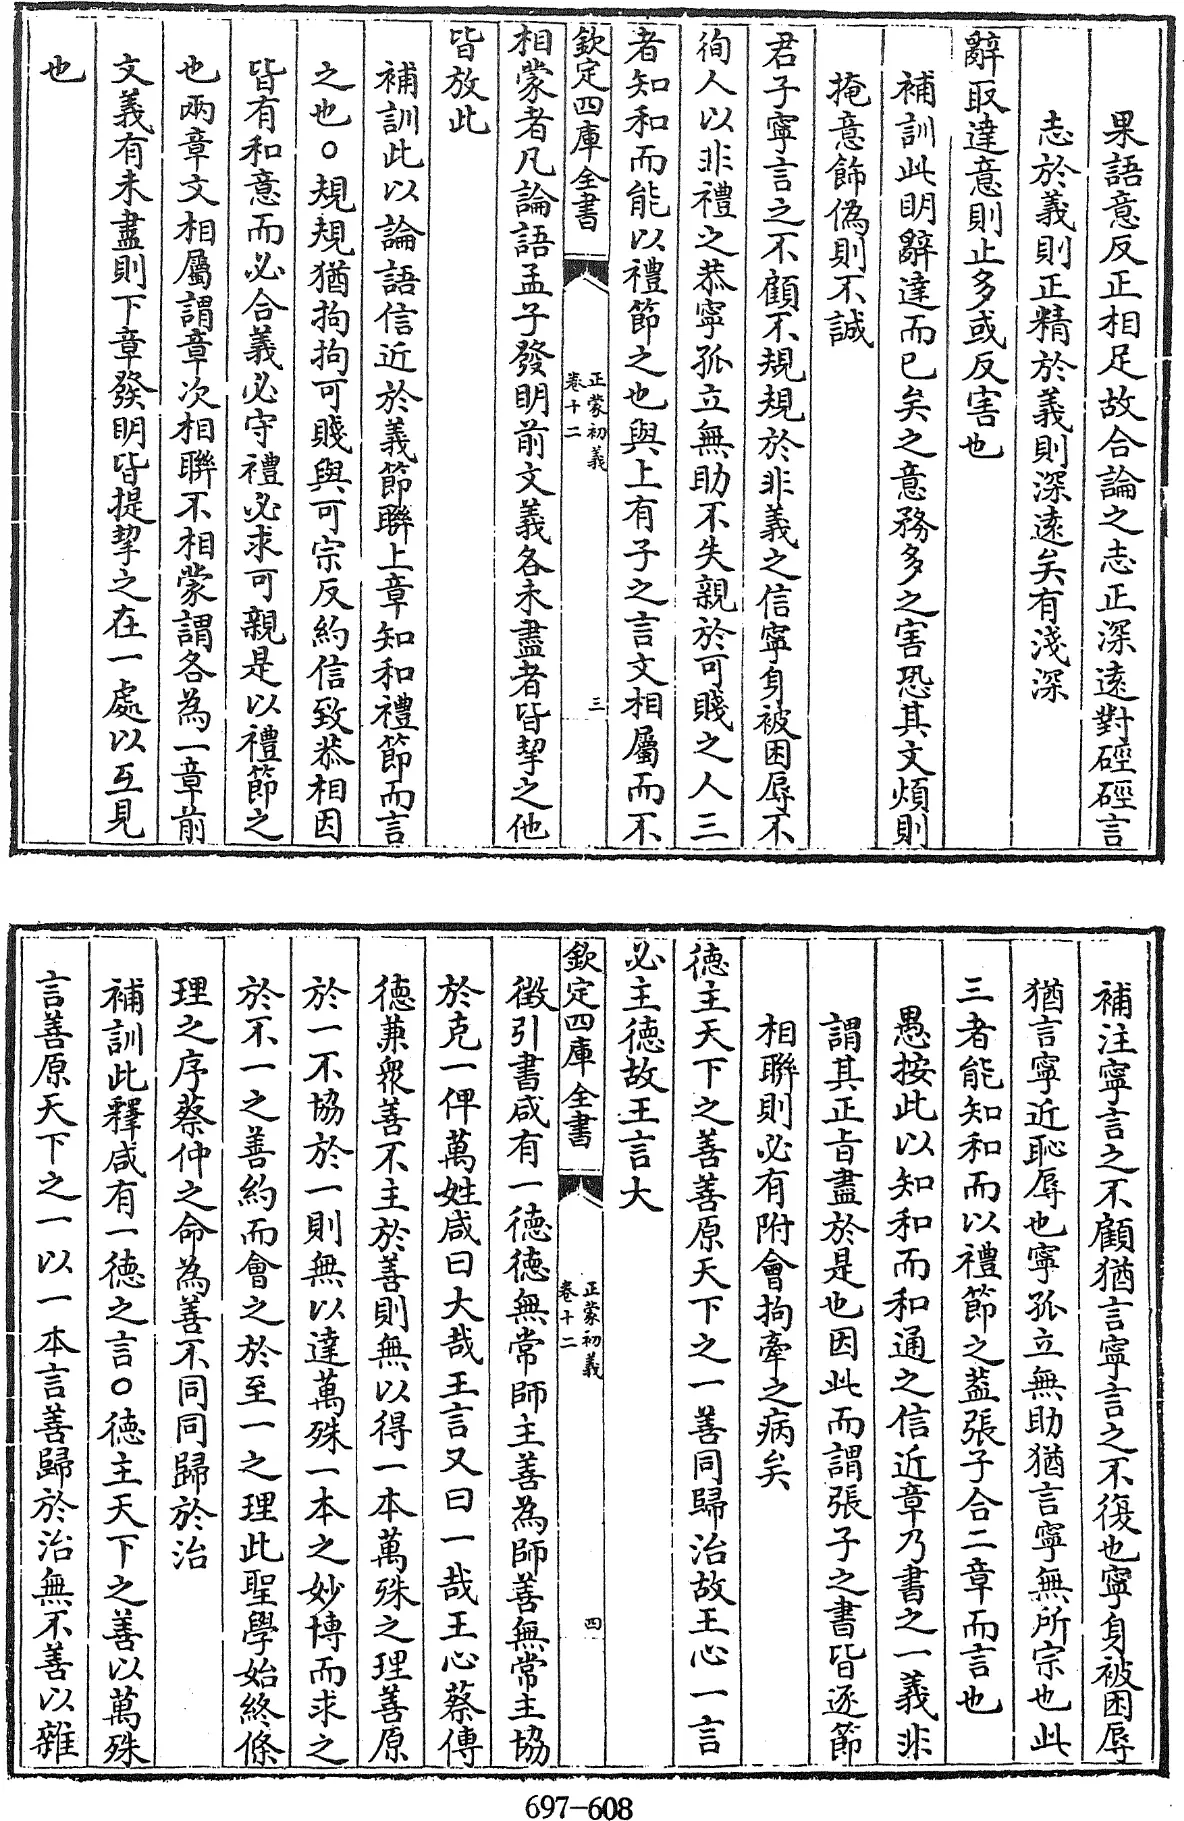 果語意反正相足故合論之志正深遠對硜硜言
志於義則正精於義則深遠矣有淺深
辭取達意則止多或反害也
補訓此明辭達而已矣之意務多之害恐其文煩則
掩意飾偽則不誠
君子寧言之不顧不規規於非義之信寧身被困辱不
徇人以非禮之恭寧孤立無助不失親於可賤之人三
者知和而能以禮節之也與上有子之言文相屬而不
欽定四庫全書
正蒙初義
卷十二
三
相蒙者凡論語孟子發明前文義各未盡者皆挈之他
皆放此
補訓此以論語信近於義節聯上章知和禮節而言
之也○規規猶拘拘可賤與可宗反約信致恭相因
皆有和意而必合義必守禮必求可親是以禮節之
也兩章文相屬謂章次相聯不相蒙謂各為一章前
文義有未盡則下章發明皆提挈之在一處以互見
也
補注寧言之不顧猶言寧言之不復也寧身被困辱
猶言寧近恥辱也寧孤立無助猶言寧無所宗也此
三者能知和而以禮節之葢張子合二章而言也
愚按此以知和而和通之信近章乃書之一義非
謂其正旨盡於是也因此而謂張子之書皆逐節
相聯則必有附會拘牽之病矣
德主天下之善善原天下之一善同歸治故王心一言
必主德故王言大
欽定四庫全書
正蒙初義
卷十二
四
徴引書咸有一德德無常師主善為師善無常主協
於克一俾萬姓咸曰大哉王言又曰一哉王心蔡傳
德兼衆善不主於善則無以得一本萬殊之理善原
於一不協於一則無以達萬殊一本之妙博而求之
於不一之善約而會之於至一之理此聖學始終條
理之序蔡仲之命為善不同同歸於治
補訓此釋咸有一德之言○德主天下之善以萬殊
言善原天下之一以一本言善歸於治無不善以雜
697-608